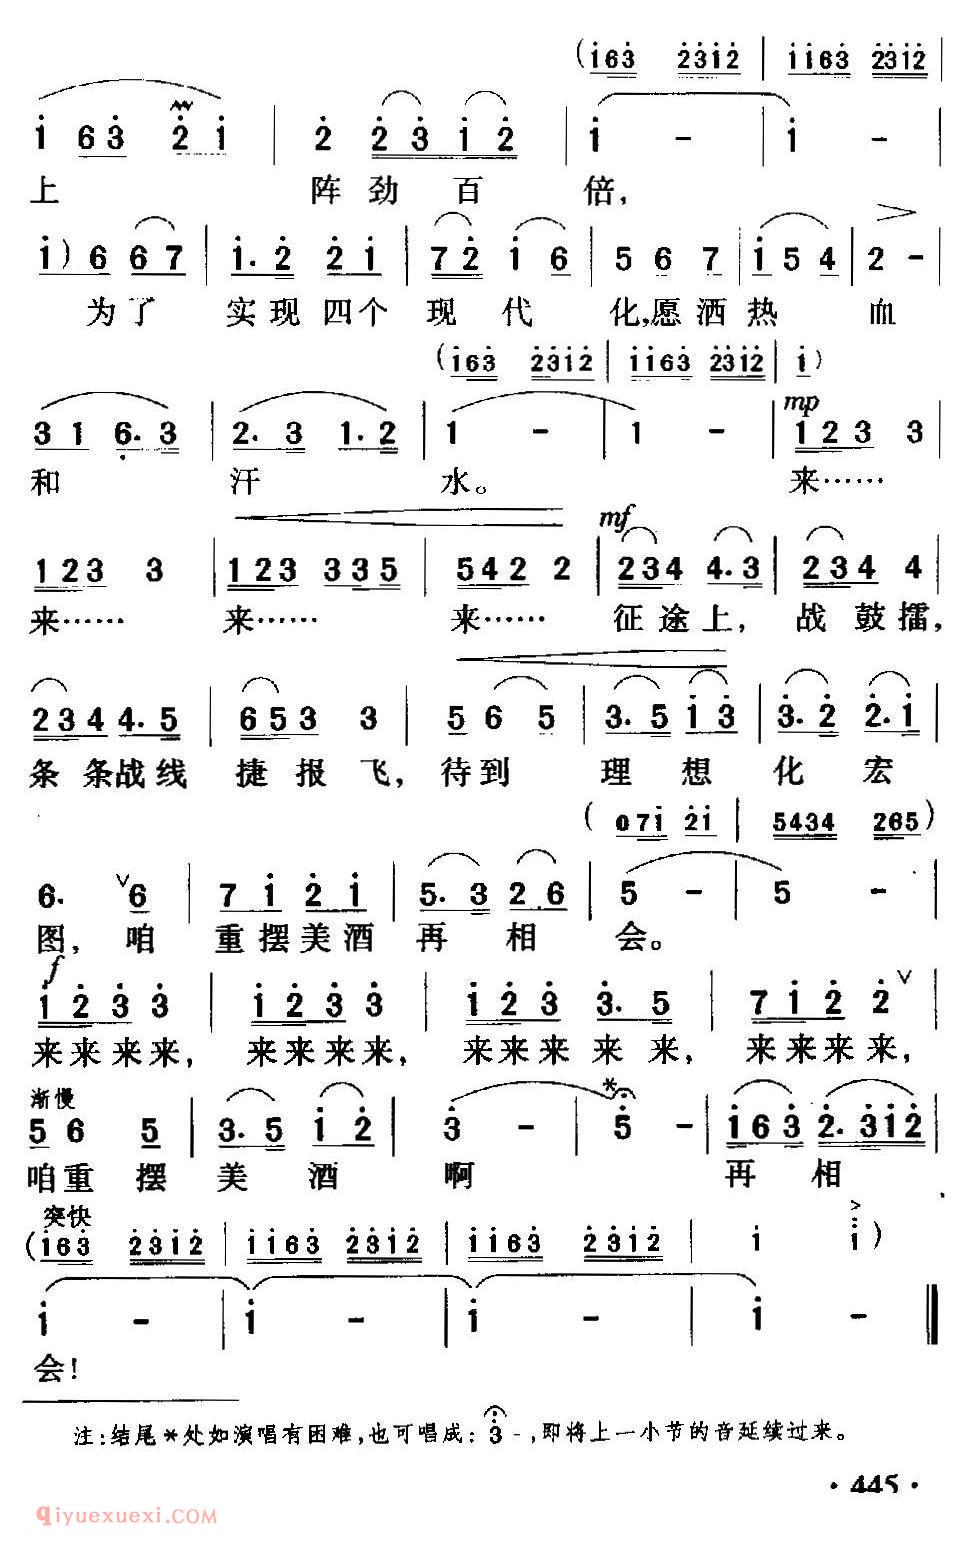 (i̇63̇ 2̇3̇i̇2̇ | i̇i̇63̇ 2̇3̇i̇2̇ |
i̇ 63̇ 2̇ i̇ | 2̇ 2̇3̇ i̇2̇ | i̇ - | i̇ - |
上 阵 劲 百 倍,
i̇) 6 6 7 | i̇. 2̇ 2̇ i̇ | 7 2̇ i̇ 6 | 5 6 7 | i̇ 5 4 | 2 - |
为了 实现 四个 现 代 化,愿 洒 热 血
(i̇63̇ 2̇3̇i̇2̇ | i̇i̇63̇ 2̇3̇i̇2̇ | i̇)
mp
3 1 6̣. 3 | 2. 3 1. 2 | 1 - | 1 - | 1 2 3 3 |
和 汗 水。 来……
mf
1 2 3 3 | 1 2 3 3 3 5 | 5 4 2 2 | 2 3 4 4. 3 | 2 3 4 4 |
来…… 来…… 来…… 征途上, 战鼓擂,
2 3 4 4. 5 | 6 5 3 3 | 5 6 5 | 3. 5 i̇ 3̇ | 3̇. 2̇ 2̇. i̇ |
条 条战线 捷报飞, 待到 理 想 化 宏
(0 7 i̇ 2̇ i̇ | 5434 265)
6. ∨ 6 | 7 i̇ 2̇ i̇ | 5. 3 2 6 | 5 - | 5 - |
图, 咱 重摆美酒 再 相 会。
f
i̇ 2̇ 3̇ 3̇ | i̇ 2̇ 3̇ 3̇ | i̇ 2̇ 3̇ 3̇. 5 | 7 i̇ 2̇ 2̇ ∨ |
来来来来, 来来来来, 来来来 来 来, 来来来来,
渐慢 *
5 6 5 | 3. 5 i̇ 2̇ | 3̇ - | 5̇ - | i̇ 6 3̇ 2̇. 3̇i̇2̇ |
咱重 摆 美 酒 啊 再 相
突快 >
(i̇63̇ 2̇3̇i̇2̇ | i̇i̇63̇ 2̇3̇i̇2̇ | i̇i̇63̇ 2̇3̇i̇2̇ | i̇ i̇)
i̇ - | i̇ - | i̇ - | i̇ - ‖
会!
注:结尾*处如演唱有困难,也可唱成: 3̇ -,即将上一小节的音延续过来。
· 445 ·
qiyuexuexi.COM